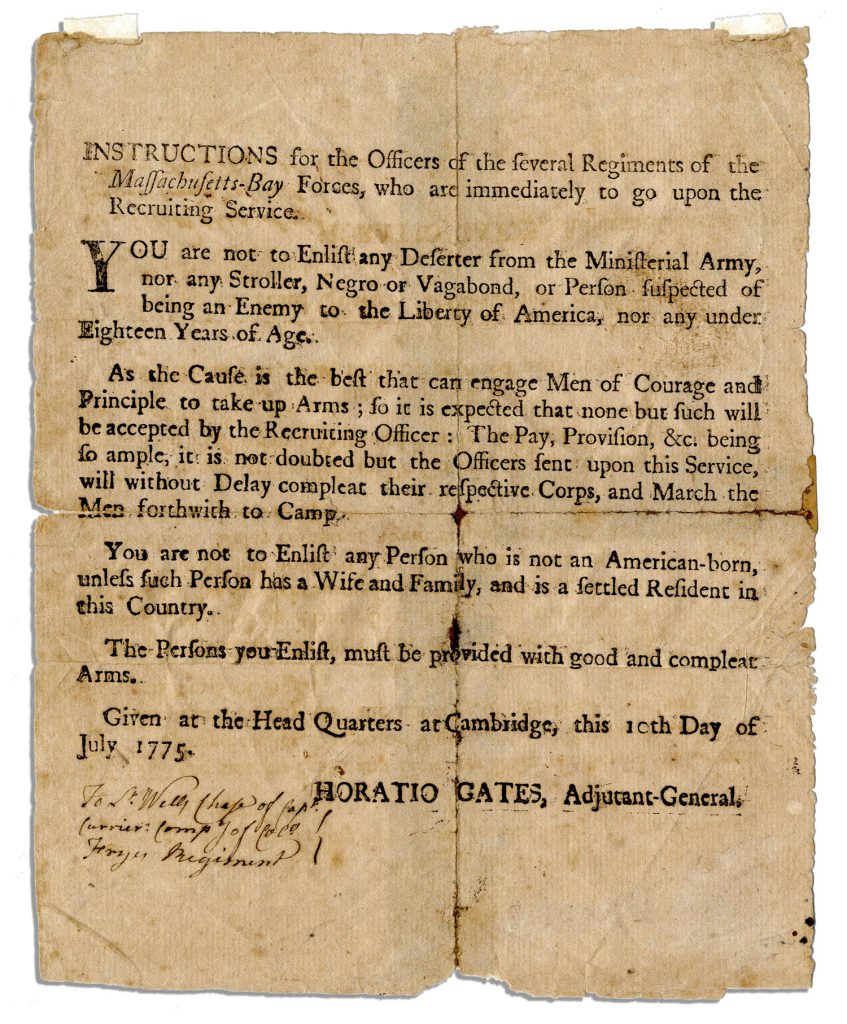 INSTRUCTIONS for the Officers of the ſeveral Regiments of the
Maſſachuſetts-Bay Forces, who are immediately to go upon the
Recruiting Service.
YOU are not to Enliſt any Deſerter from the Miniſterial Army,
nor any Stroller, Negro or Vagabond, or Perſon ſuſpected of
being an Enemy to the Liberty of America, nor any under
Eighteen Years of Age.
As the Cauſe is the beſt that can engage Men of Courage and
Principle to take up Arms ; ſo it is expected that none but ſuch will
be accepted by the Recruiting Officer : The Pay, Proviſion, &c. being
ſo ample, it is not doubted but the Officers ſent upon this Service,
will without Delay compleat their reſpective Corps, and March the
Men forthwith to Camp.
You are not to Enliſt any Perſon who is not an American-born,
unleſs ſuch Perſon has a Wife and Family, and is a ſettled Reſident in
this Country.
The Perſons you Enliſt, muſt be provided with good and compleat
Arms.
Given at the Head Quarters at Cambridge, this 10th Day of
July 1775.
HORATIO GATES, Adjutant-General.
To Lt. Wells Chase of Capt.
Currier: Compy of Coll
Fryes Regiment